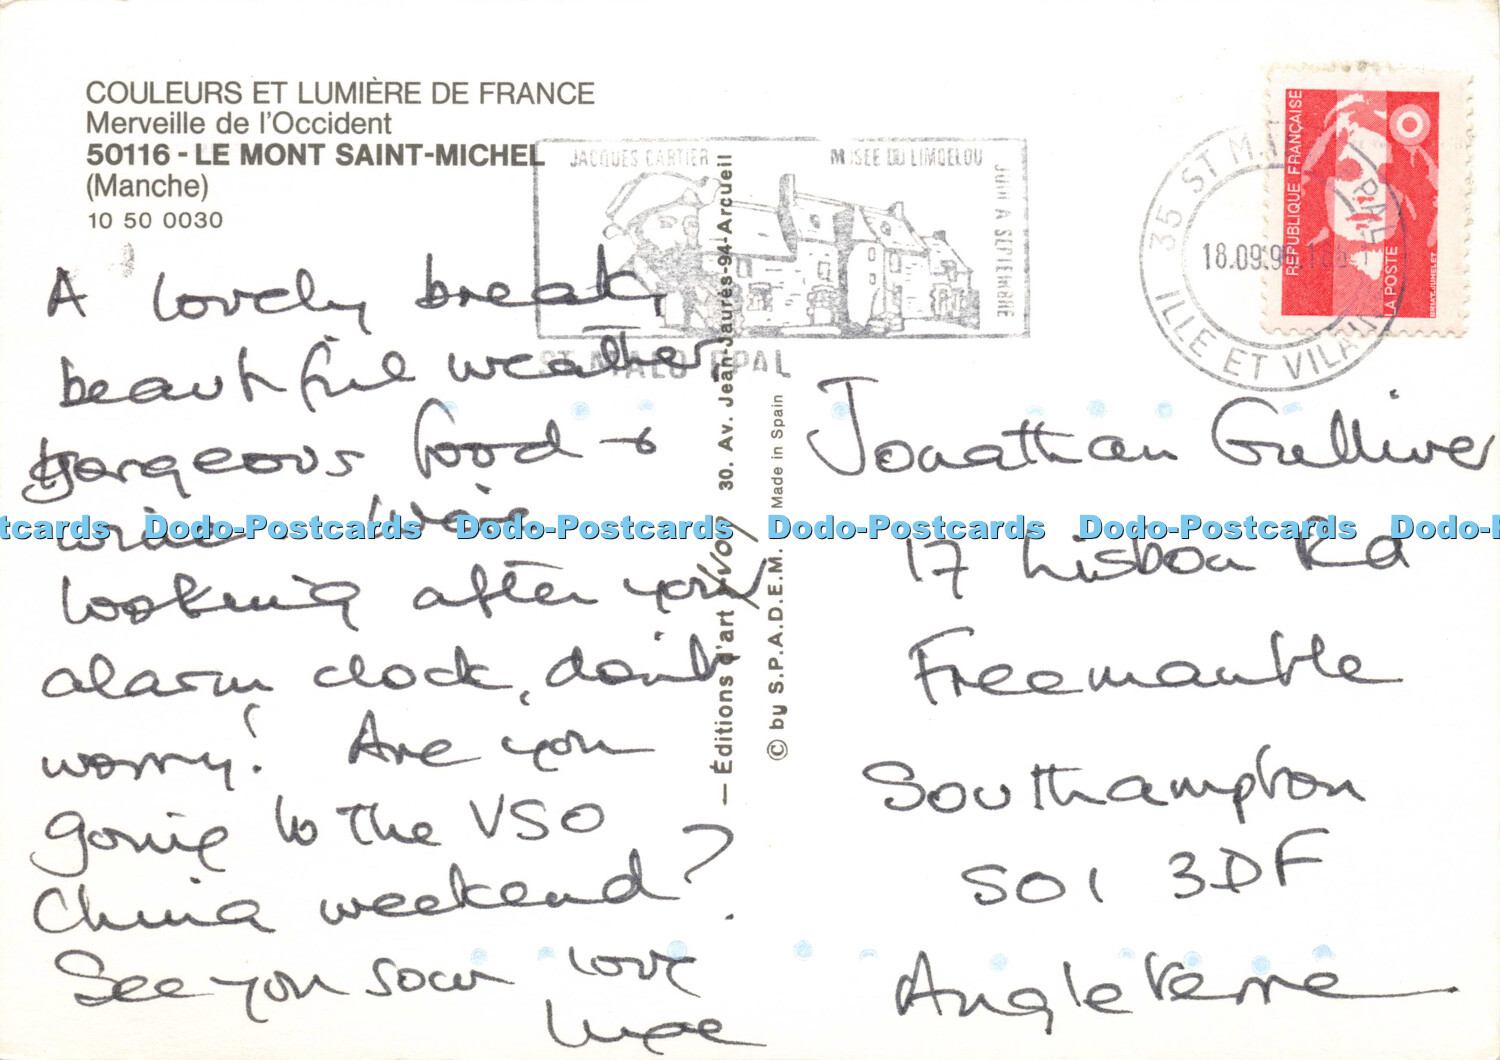 COULEURS ET LUMIÈRE DE FRANCE
Merveille de l'Occident
50116 - LE MONT SAINT-MICHEL
(Manche)
10 50 0030
A lovely break,
beautiful weather,
gorgeous food &
wine. We're
looking after your
alarm clock, don't
worry! Are you
going to the VSO
China weekend?
See you soon love
JACQUES CARTIER
MUSEE DU LIMOELOU
JUIN A SEPTEMBRE
ST MALO PPAL
— Éditions d'art YVON 30. Av. Jean-Jaurès-94-Arcueil
© by S.P.A.D.E.M. Made in Spain
35 ST MALO PPAL
18.09.9
ILLE ET VILAINE
REPUBLIQUE FRANÇAISE
LA POSTE
BRIAT-JUMELET
Jonathan Gulliver
17 Lisbon Rd
Freemantle
Southampton
SO1 3DF
Angleterre.
Dodo-Postcards Dodo-Postcards Dodo-Postcards Dodo-Postcards Dodo-Postcards